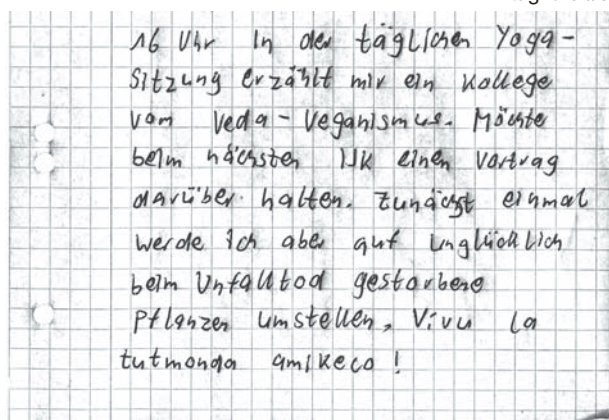 16 Uhr In der täglichen Yoga-
Sitzung erzählt mir ein Kollege
vom Veda-Veganismus. Möchte
beim nächsten IJK einen Vortrag
darüber halten. Zunächst einmal
werde ich aber auf unglücklich
beim Unfalltod gestorbene
Pflanzen umstellen. Vivu la
tutmonda amikeco!